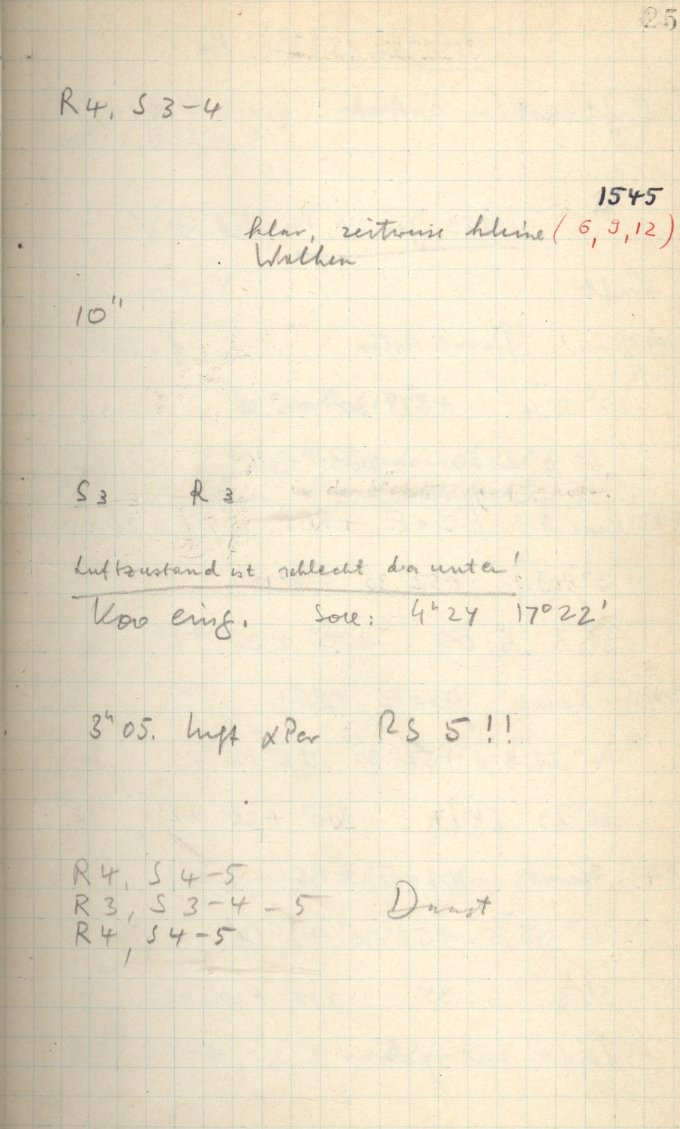 25
R4, S 3-4
1545
klar, zeitweise kleine (6, 9, 12)
Wolken
10"
S3 R3
Luftzustand ist schlecht da unten!
Koo eing. Soll: 4h24 17°22'
3h05. Luft α Per RS 5!!
R4, S 4-5
R3, S 3-4-5 Dunst
R4, S 4-5